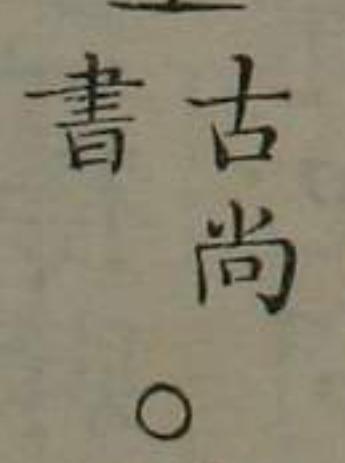 古尚
書
○